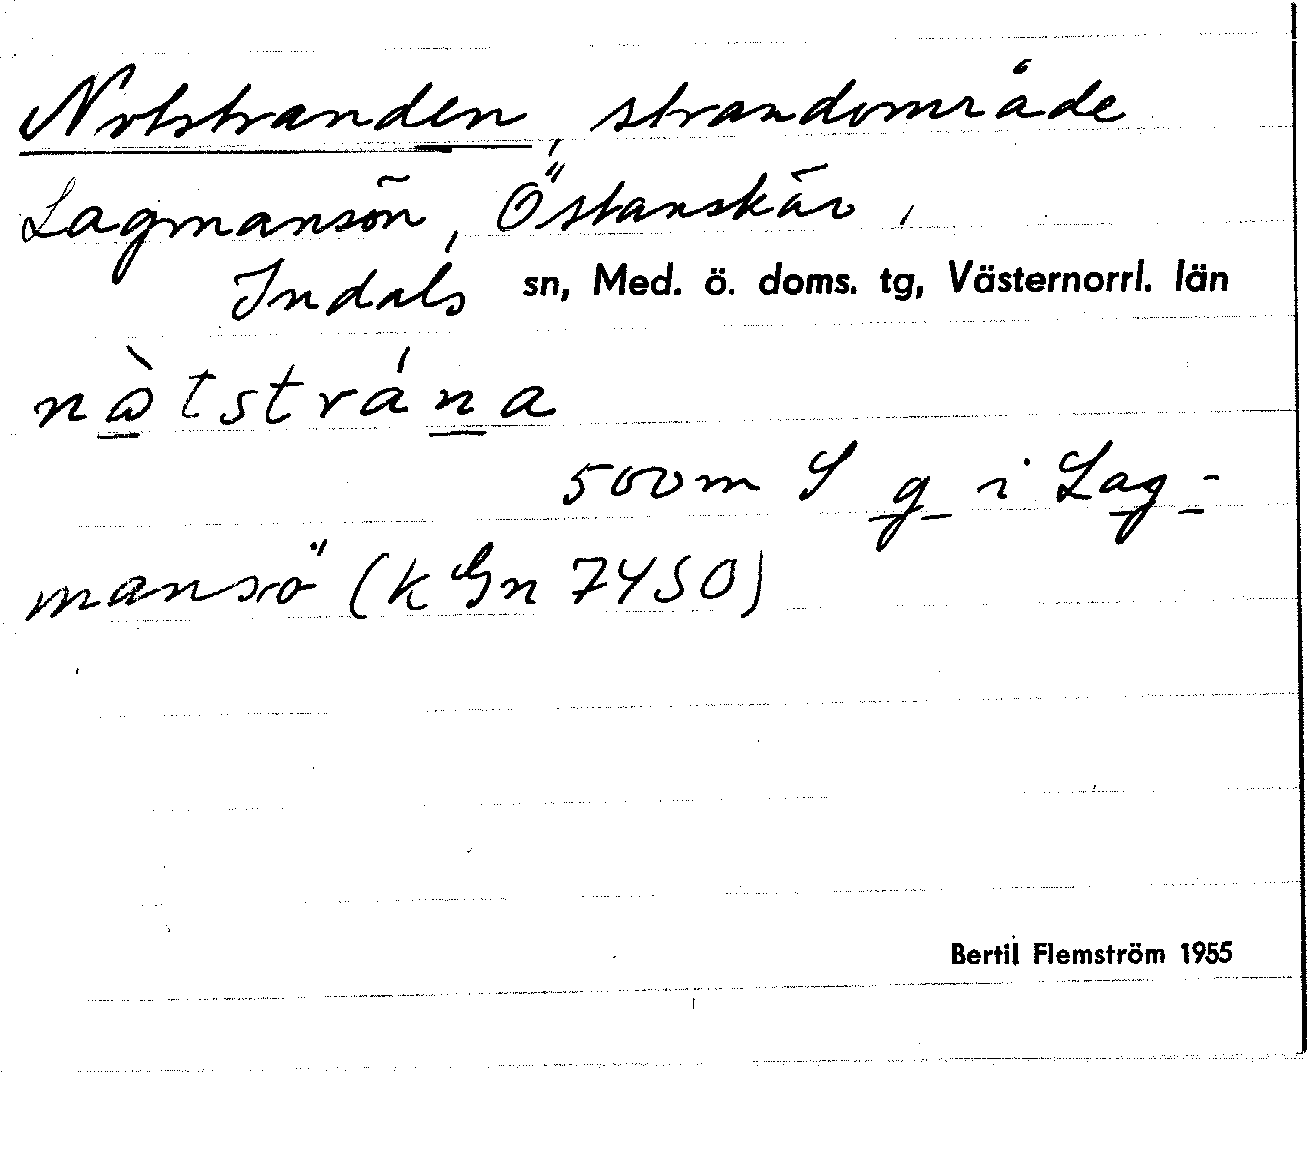 Notstranden, strandområde
Lagmansön, Östanskär,
Indals sn, Med. ö. doms. tg, Västernorrl. län
nòtstrána
500m S g i Lag-
mansö (k Gn 7450)
Bertil Flemström 1955